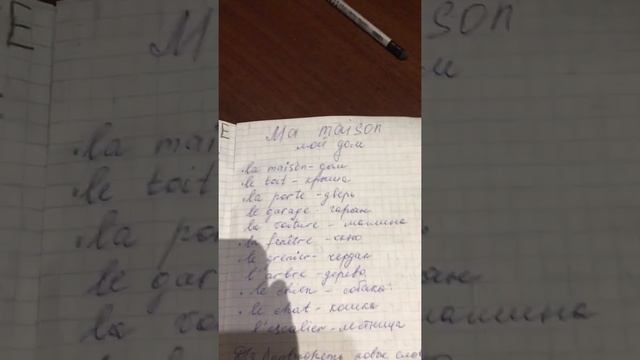 Ma maison
мой дом
la maison - дом
le toit - крыша
la porte - дверь
le garage - гараж
la voiture - машина
la fenêtre - окно
le grenier - чердак
l'arbre - дерево
le chien - собака
le chat - кошка
l'escalier - лестница
новые